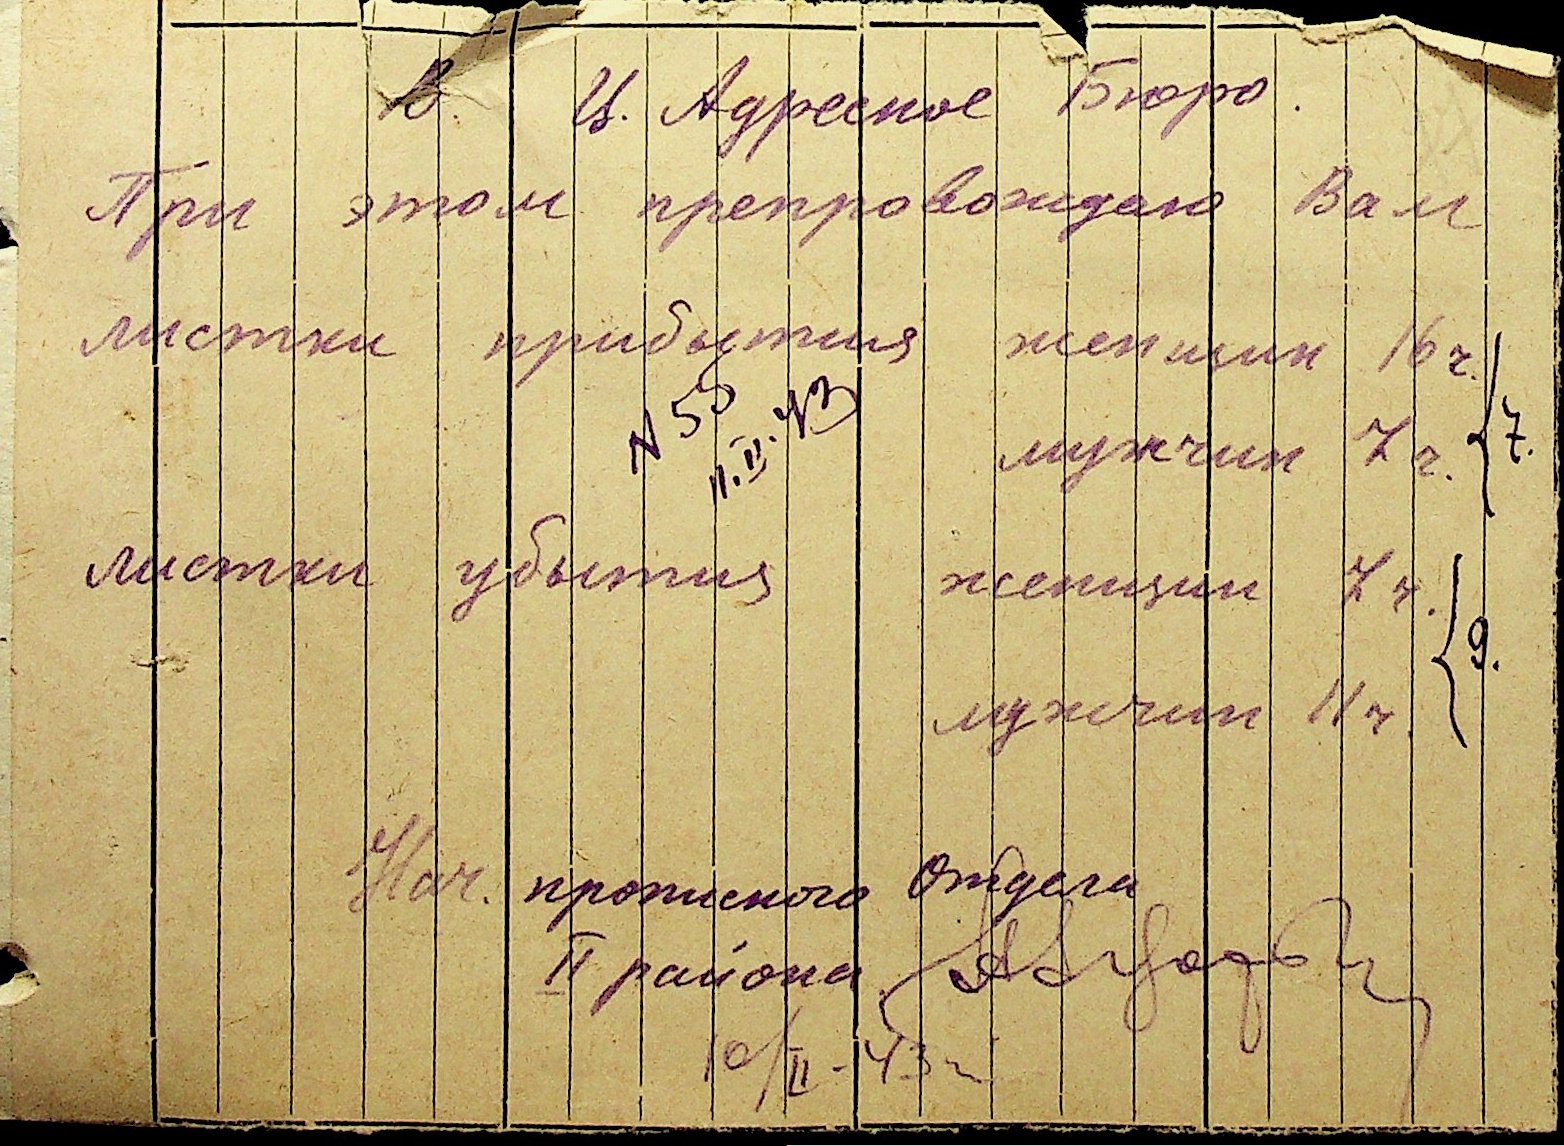 В. Ц. Адресное Бюро.
При этом препровождаю Вам
листки прибытия женщин 16 ч.
N 55
11.II.43
мужчин 7 ч. 7.
листки убытия женщин 7 ч.
9.
мужчин 11 ч.
Нач. прописного Отдела
II района
10/II-43 г.